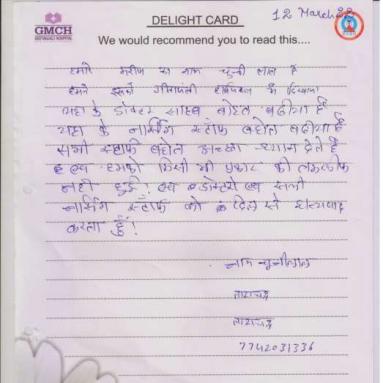 GMCH
GEETANJALI HOSPITAL
DELIGHT CARD
12 March 22
We would recommend you to read this....
हमारे मरीज का नाम चुन्नी लाल है
हमने इसको गीतांजली हॉस्पिटल में दिखाया
यहा के डॉक्टर साहब बोहत बढीया है
यहा के नर्सिंग स्टॉफ बहोत बढीया है
सभी स्टाफ बहोत अच्छा ध्यान देते है
हमको किसी भी प्रकार की तकलीफ
नही हुई! डॉक्टरो एव सभी
नर्सिंग स्टॉफ को दिल से धन्यवाद
करता हुँ!
नाम चुन्नीलाल
ताराचन्द्र
ताराचन्द्र
7742031336